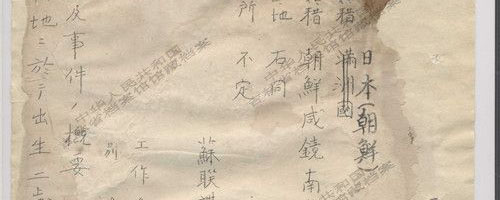 日本(朝鮮)
籍 満洲國
籍 朝鮮咸鏡南
地 右同
所 不定
蘇聯諜
工作
別
及事件ノ概要
地ニ於テ出生